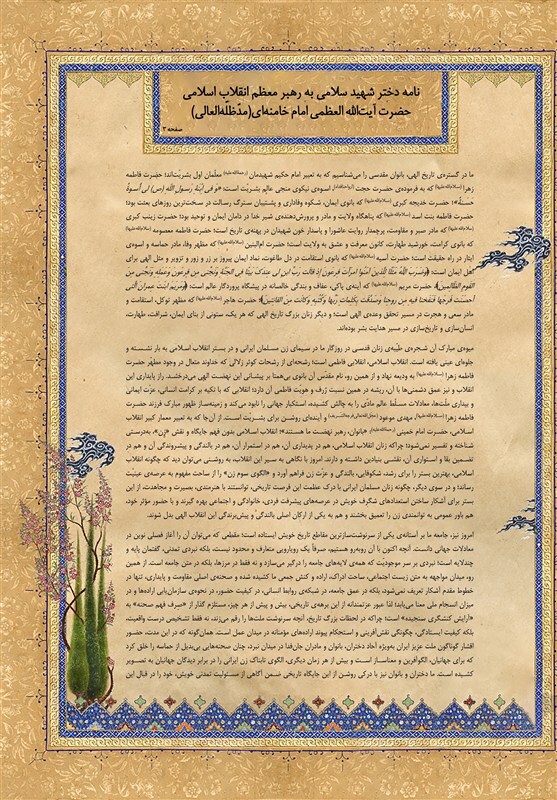 نامه دختر شهید سلامی به رهبر معظم انقلاب اسلامی
حضرت آیت‌الله العظمی امام خامنه‌ای(مدّظلّه‌العالی)
صفحه ۲
ما در گستره‌ی تاریخ الهی، بانوان مقدسی را می‌شناسیم که به تعبیر امام حکیم شهیدمان معلّمان اول بشریّت‌اند؛ حضرت فاطمه
زهرا (سلام‌الله‌علیها) که به فرموده‌ی حضرت حجت اسوه‌ی نیکوی منجی عالم بشریّت است؛ «و فی اِبنَةِ رسول الله (ص) لی اُسوَةٌ
حَسَنَةٌ»؛ حضرت خدیجه کبری (سلام‌الله‌علیها) که بانوی ایمان، شکوه وفاداری و پشتیبان سترگ رسالت در سخت‌ترین روزهای بعثت بود؛
حضرت فاطمه بنت اسد (سلام‌الله‌علیها) که پناهگاه ولایت و مادر و پرورش‌دهنده‌ی شیر خدا در دامان ایمان و توحید بود؛ حضرت زینب کبری
(سلام‌الله‌علیها) که مادر صبر و مقاومت، پرچمدار روایت عاشورا و پاسدار خون شهیدان در پهنه‌ی تاریخ است؛ حضرت فاطمه معصومه (سلام‌الله‌علیها)
که بانوی کرامت، خورشید طهارت، کانون معرفت و عشق به ولایت است؛ حضرت ام‌البنین (سلام‌الله‌علیها) که مظهر وفا، مادر حماسه و اسوه‌ی
ایثار در راه حقیقت است؛ حضرت آسیه (سلام‌الله‌علیها) که بانوی استقامت در دل طاغوت، نماد ایمان پیروز بر زر و زور و تزویر و مثل الهی برای
اهل ایمان است؛ «وَضَرَبَ اللَّهُ مَثَلًا لِلَّذِينَ آمَنُوا امْرَأَتَ فِرْعَوْنَ إِذْ قَالَتْ رَبِّ ابْنِ لِي عِنْدَكَ بَيْتًا فِي الْجَنَّةِ وَنَجِّنِي مِنْ فِرْعَوْنَ وَعَمَلِهِ وَنَجِّنِي مِنَ
الْقَوْمِ الظَّالِمِينَ»؛ حضرت مریم (سلام‌الله‌علیها) که آینه‌ی پاکی، عفاف و بندگی خالصانه در پیشگاه پروردگار عالم است؛ «وَمَرْيَمَ ابْنَتَ عِمْرَانَ الَّتِي
أَحْصَنَتْ فَرْجَهَا فَنَفَخْنَا فِيهِ مِنْ رُوحِنَا وَصَدَّقَتْ بِكَلِمَاتِ رَبِّهَا وَكُتُبِهِ وَكَانَتْ مِنَ الْقَانِتِينَ»؛ حضرت هاجر (سلام‌الله‌علیها) که مظهر توکل، استقامت و
مادر سعی و هجرت در مسیر تحقق وعده‌ی الهی است؛ و دیگر زنان بزرگ تاریخ الهی که هر یک، ستونی از بنای ایمان، شرافت، طهارت،
انسان‌سازی و تاریخ‌سازی در مسیر هدایت بشر بوده‌اند.
میوه‌ی مبارک آن شجره‌ی طیّبه‌ی زنان قدسی در روزگار ما در سیمای زن مسلمان ایرانی و در بستر انقلاب اسلامی به بار نشسته و
جلوه‌ای عینی یافته است. انقلاب اسلامی، انقلابی فاطمی است؛ رشحه‌ای از رشحات کوثر زلالی که خداوند متعال در وجود مطهّر حضرت
فاطمه زهرا (سلام‌الله‌علیها) به ودیعه نهاد و از همین رو، نام مقدّس آن بانوی بی‌همتا بر پیشانی این نهضت الهی می‌درخشد. راز پایداری این
انقلاب و نیز عمق دشمنی‌ها با آن، ریشه در همین نسبت ژرف و هویت فاطمی آن دارد؛ انقلابی که با تکیه بر کرامت انسانی، عزت ایمانی
و بیداری ملت‌ها، معادلات مسلّط عالم مادّی را به چالش کشیده، استکبار جهانی را نابود می‌کند و زمینه‌ساز ظهور مبارک فرزند حضرت
فاطمه زهرا (سلام‌الله‌علیها)، مهدی موعود و آینده‌ای روشن برای بشریّت است. از آن‌جا که به تعبیر معمار کبیر انقلاب
اسلامی، حضرت امام خمینی «بانوان، رهبر نهضت ما هستند.» انقلاب اسلامی بدون فهم جایگاه و نقش «زن»، به‌درستی
شناخته و تفسیر نمی‌شود؛ چراکه زنان انقلاب اسلامی، هم در پدیداری آن، هم در استمرار آن، هم در بالندگی و پیشروندگی آن و هم در
تضمین بقا و استواری آن، نقشی بنیادین داشته و دارند. امروز با نگاهی به سیر این انقلاب، به روشنی می‌توان دید که چگونه انقلاب
اسلامی، بهترین بستر را برای رشد، شکوفایی، بالندگی و عزّت زن فراهم آورد و «الگوی سوم زن» را از ساحت مفهوم به عرصه‌ی عینیّت
رساند؛ و در سوی دیگر، چگونه زنان مسلمان ایرانی با درک عظمت این فرصت تاریخی، توانستند با هنرمندی، بصیرت و مجاهدت، از این
بستر برای آشکار ساختن استعدادهای شگرف خویش در عرصه‌های پیشرفت فردی، خانوادگی و اجتماعی بهره گیرند و با حضور مؤثر خود،
هم باور عمومی به توانمندی زن را تعمیق بخشند و هم به یکی از ارکان اصلی بالندگی و پیش‌برندگی این انقلاب الهی بدل شوند.
امروز نیز، جامعه ما بر آستانه‌ی یکی از سرنوشت‌سازترین مقاطع تاریخ خویش ایستاده است؛ مقطعی که می‌توان آن را آغاز فصلی نوین در
معادلات جهانی دانست. آنچه اکنون با آن روبه‌رو هستیم، صرفاً یک رویارویی متعارف و محدود نیست، بلکه نبردی تمدنی، گفتمان پایه و
چندلایه است؛ نبردی بر سر موجودیت که همه‌ی لایه‌های جامعه را درگیر می‌سازد و نه فقط در مرزها، بلکه در متن جامعه است. از همین
رو، میدان مواجهه به متن زیست اجتماعی، ساحت ادراک، اراده و کنش جمعی ما کشیده شده و صحنه‌ی اصلی مقاومت و پایداری، تنها در
خطوط مقدم آشکار تعریف نمی‌شود، بلکه در عمق جامعه، در شبکه‌ی روابط انسانی، در کیفیت حضور، در نحوه‌ی سازمان‌یابی اراده‌ها و در
میزان انسجام ملی معنا می‌یابد؛ لذا عبور عزتمندانه از این برهه‌ی تاریخی، بیش و پیش از هر چیز، مستلزم گذار از «صرف فهم صحنه» به
«آرایش کنشگری سنجیده» است؛ چراکه در لحظات بزرگ تاریخ، آنچه سرنوشت ملت‌ها را رقم می‌زند، نه فقط تشخیص درست واقعیت،
بلکه کیفیت ایستادگی، چگونگی نقش‌آفرینی و استحکام پیوند اراده‌های مؤمنانه در میدان عمل است. همان‌گونه که در این مدت، حضور
اقشار گوناگون ملت عزیز ایران به‌ویژه آحاد دختران، بانوان و مادران جان‌فدا در میدان نبرد، چنان صحنه‌هایی بی‌بدیل از حماسه را خلق کرد
که برای جهانیان، الگوآفرین و معناساز است و بیش از هر زمان دیگری، الگوی تابناک زن ایرانی را در برابر دیدگان جهانیان به تصویر
کشیده است. ما دختران و بانوان نیز با درکی روشن از این جایگاه تاریخی ضمن آگاهی از مسئولیت تمدنی خویش، خود را در قبال این